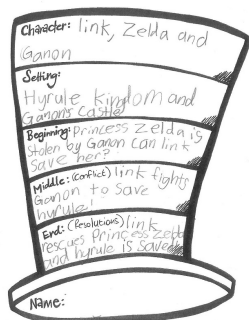 Character: link, Zelda and
Ganon
Setting:
Hyrule kingdom and
Ganon's Castle
Beginning: Princess Zelda is
stolen by Ganon Can link
save her?
Middle: (Conflict) link fights
Ganon to save
hyrule!
End: (Resolutions) link
rescues Princess Zelda
and hyrule is saved
Name: